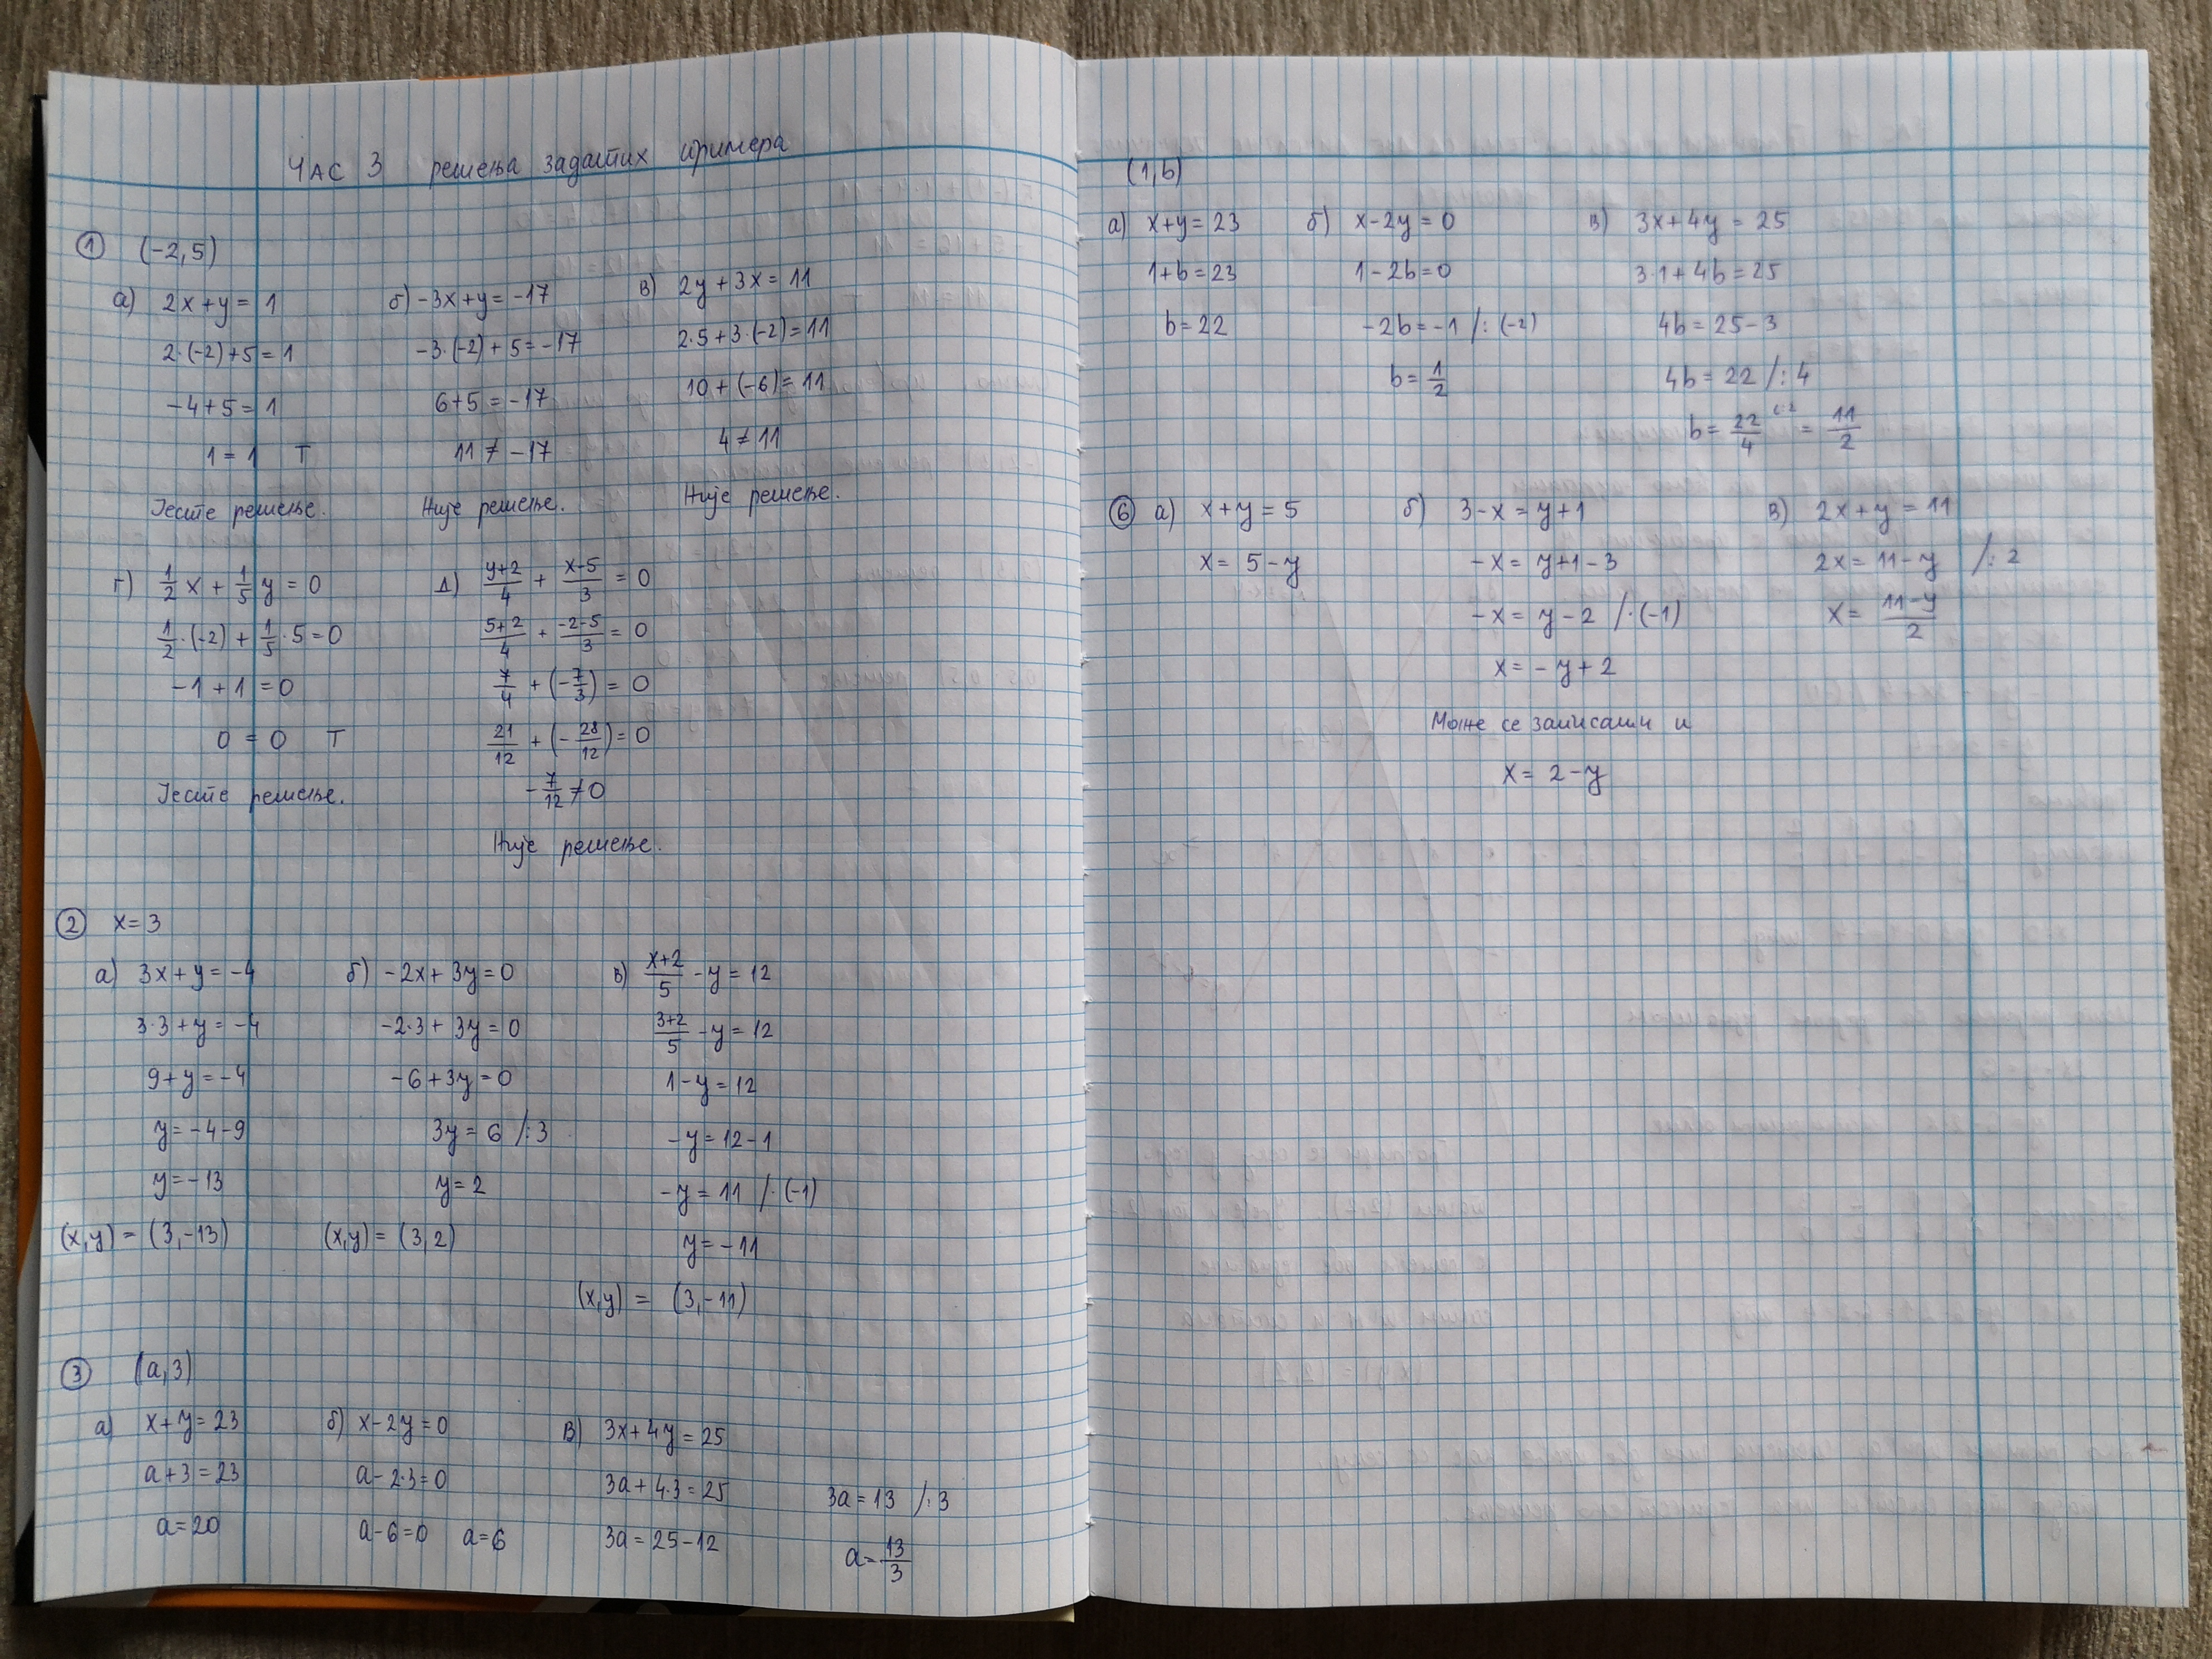 ЧАС 3 решења задатих примера
① (-2,5)
а) 2x+y=1
2·(-2)+5=1
-4+5=1
1=1 T
Јесте решење.
б) -3x+y=-17
-3·(-2)+5=-17
6+5=-17
11≠-17
Није решење.
в) 2y+3x=11
2·5+3·(-2)=11
10+(-6)=11
4≠11
Није решење.
г) 1/2 x + 1/5 y = 0
1/2·(-2) + 1/5·5=0
-1+1=0
0=0 T
Јесте решење.
д) (y+2)/4 + (x-5)/3 = 0
(5+2)/4 + (-2-5)/3 = 0
7/4 + (-7/3) = 0
21/12 + (-28/12) = 0
-7/12≠0
Није решење.
② x=3
а) 3x+y=-4
3·3+y=-4
9+y=-4
y=-4-9
y=-13
(x,y) = (3,-13)
б) -2x+3y=0
-2·3+3y=0
-6+3y=0
3y=6 /:3
y=2
(x,y) = (3,2)
в) (x+2)/5 -y=12
(3+2)/5 -y=12
1-y=12
-y=12-1
-y=11 /·(-1)
y=-11
(x,y) = (3,-11)
③ (a,3)
а) x+y=23
a+3=23
a=20
б) x-2y=0
a-2·3=0
a-6=0 a=6
в) 3x+4y=25
3a+4·3=25
3a=25-12
3a=13 /:3
a=13/3
(1,b)
а) x+y=23
1+b=23
b=22
б) x-2y=0
1-2b=0
-2b=-1 /:(-2)
b=1/2
в) 3x+4y=25
3·1+4b=25
4b=25-3
4b=22 /:4
b=22/4 (:2 = 11/2
⑥ а) x+y=5
x=5-y
б) 3-x=y+1
-x=y+1-3
-x=y-2 /·(-1)
x=-y+2
Може се записати и
x=2-y
в) 2x+y=11
2x=11-y /:2
x=(11-y)/2